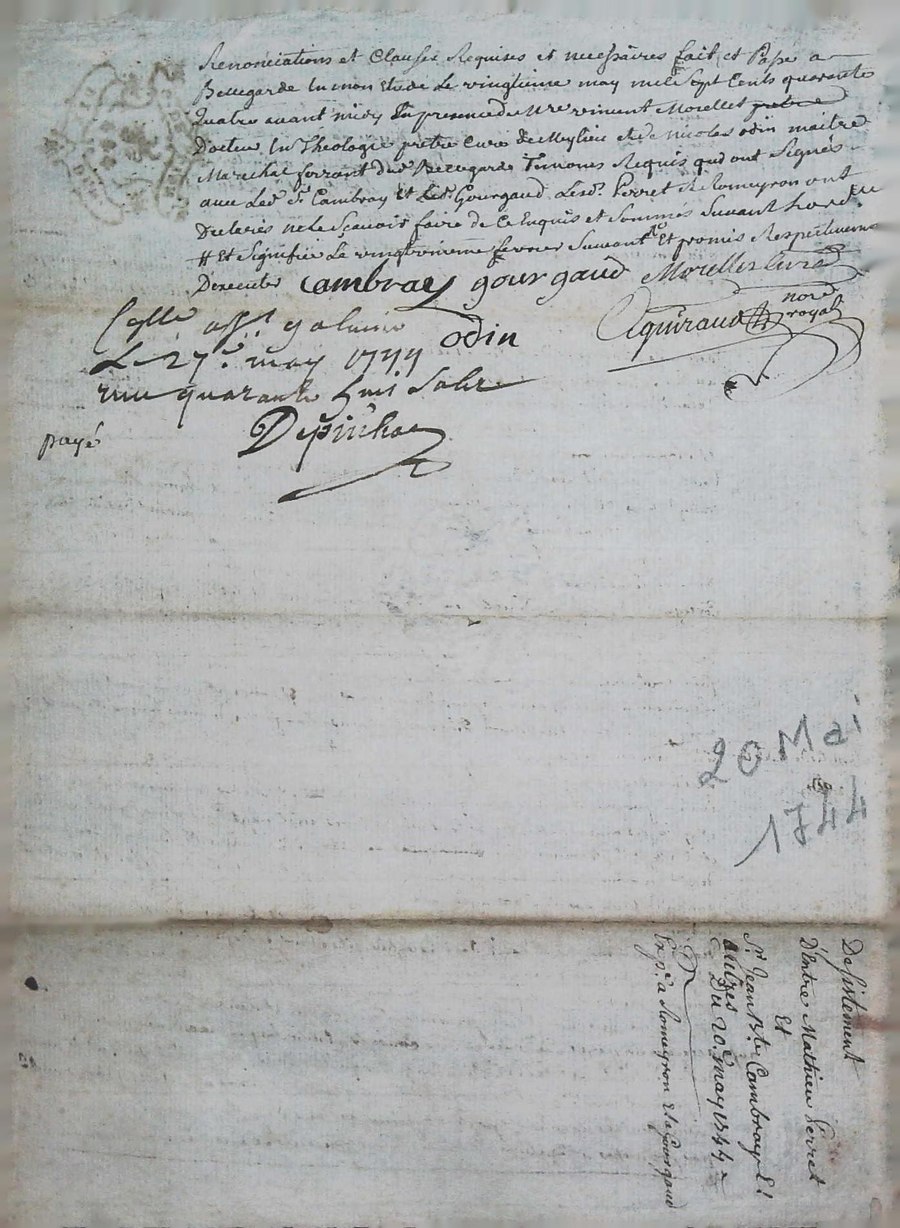 Renonciations et Clauses Requises et necessaires fait et Passé a
Bellegarde En mon Etude Le vingtieme may mil Sept Cents quarante
Quatre avant midy En presence de Mre vincent Morellet pretre
Docteur En Theologie pretre Curé de Meylieu et de nicolas odin maitre
Marechal ferrant dud Bellegarde Temoins Requis qud ont Signés
avec Led. Sr. Cambray Et Led. Gourgaud Lesd. Perret & Romeyron ont
Declarés ne le Scavoir faire de Ce Enquis et Sommés Suivant Lord.
# Et Signifiée Le vingtroisieme fevrier Suivant Et promis Respectivement
D'executer Cambray gourgaud Morellet curé
odin
Aguiraud
nore
royal
Le 27e. may 1744
reçu quarante huit Sols
Depinhac
payé
20 Mai
1744
Desistement
D'Entre Mathieu Perret
Et
Sr. Jean Bte. Cambray Et
aultres
Du 20e. may 1744
Exp. a Romeyron Et a Gourgaud